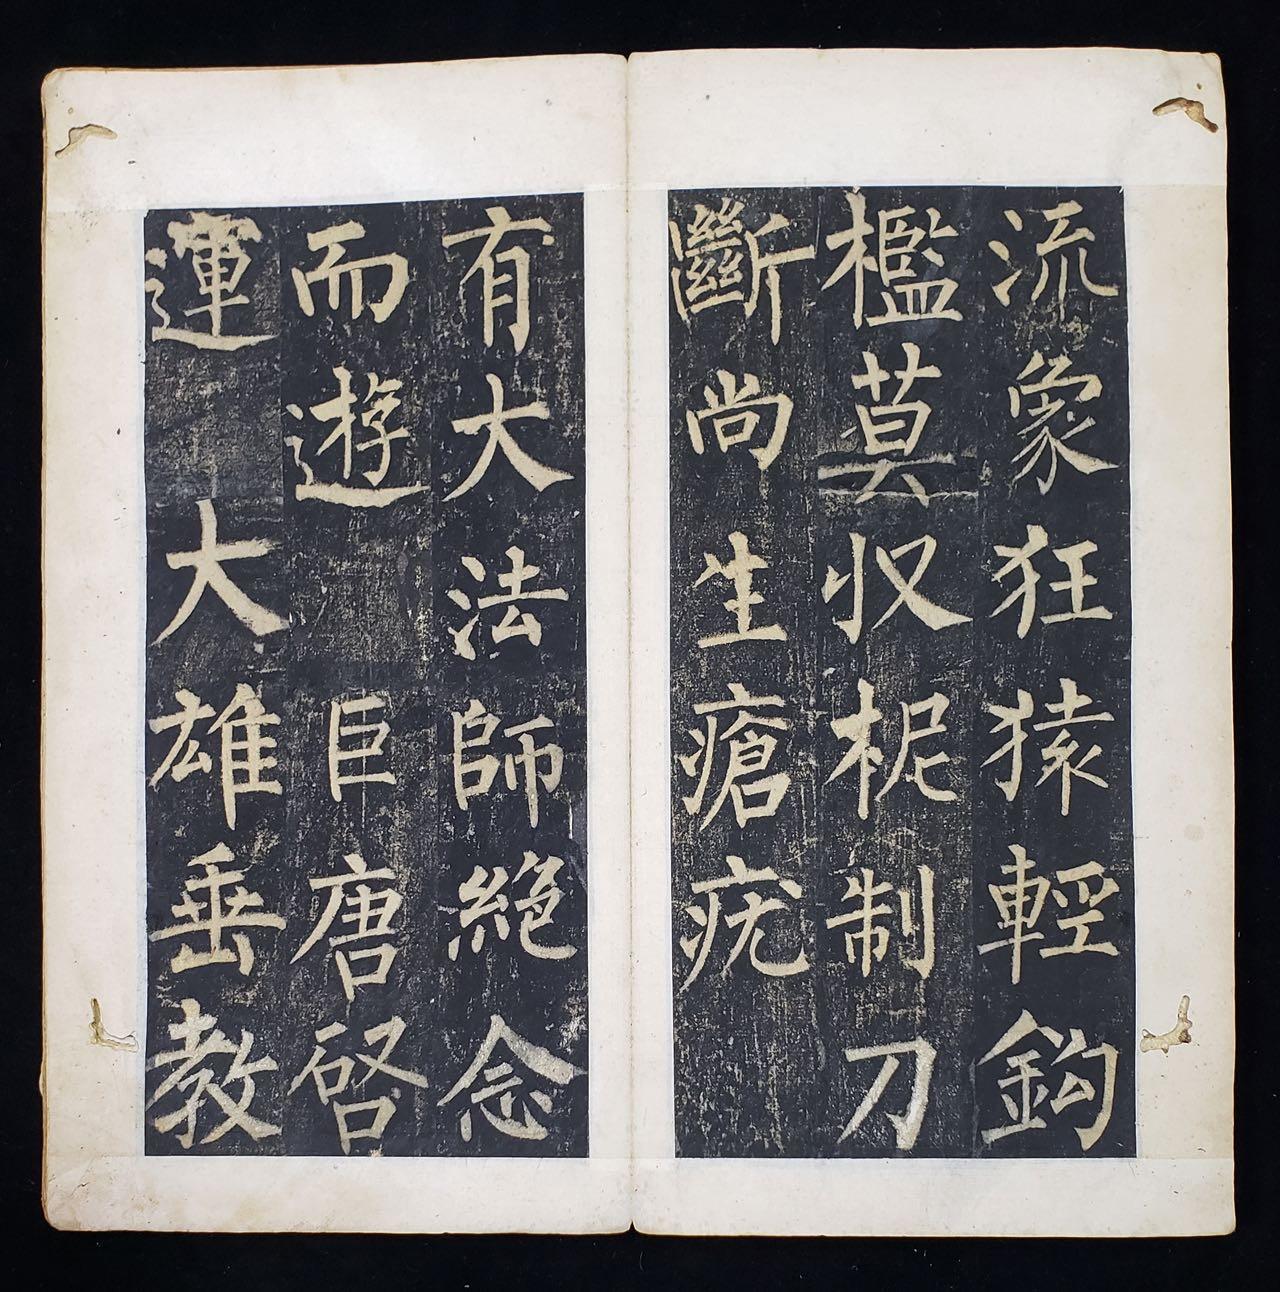 流象狂猿輕鈎
檻莫収柅制刀
斷尚生瘡疣
有大法師絶念
而遊 巨唐啓
運 大雄垂教